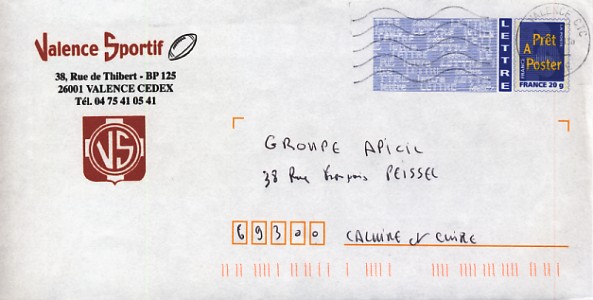 Valence Sportif
38, Rue de Thibert - BP 125
26001 VALENCE CEDEX
Tél. 04 75 41 05 41
VS
LETTRE
Prêt
A
Poster
FRANCE 20 g
VALENCE CTC
GROUPE APICIL
38 Rue François PEISSEL
69300 CALUIRE et CUIRE